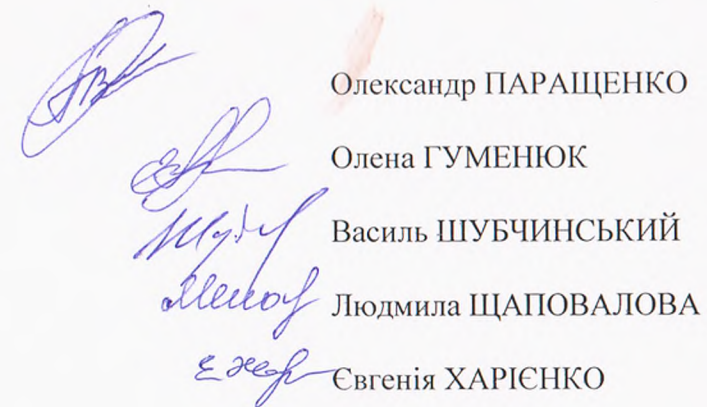 Олександр ПАРАЩЕНКО
Олена ГУМЕНЮК
Василь ШУБЧИНСЬКИЙ
Людмила ЩАПОВАЛОВА
Євгенія ХАРІЄНКО